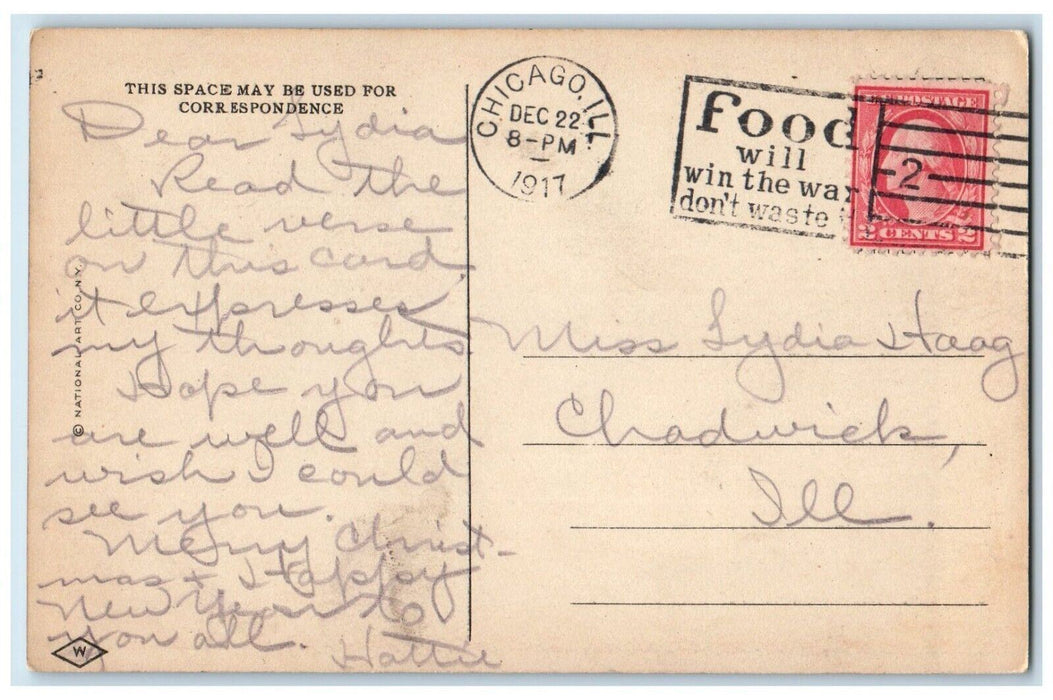 THIS SPACE MAY BE USED FOR
CORRESPONDENCE
Dear Lydia
Read the
little verse
on this card,
it expresses
my thoughts
Hope you
are well and
wish I could
see you.
Merry Christ-
mas + Happy
New Year to
you all.
Hattie
© NATIONAL ART CO. N.Y.
W
CHICAGO, ILL.
DEC 22
8-PM
1917
food
will
win the war
don't waste
POSTAGE
2
2 CENTS 2
Miss Lydia Haag
Chadwick,
Ill.